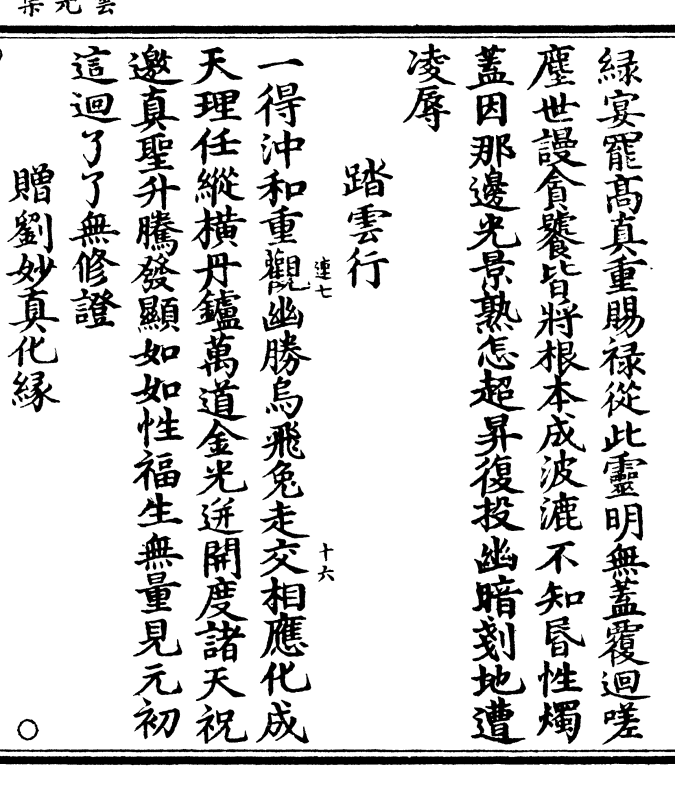 緑宴罷高真重賜禄從此靈明無蓋覆迴嗟
塵世謾貪饕皆將根本成波漉不知昏性燭
蓋因那邊光景熟怎超昇復投幽暗刻地遭
凌辱
踏雲行
一得沖和重觀幽勝烏飛兔走交相應化成
連七
十六
天理任縱橫丹鑪萬道金光迸開度諸天祝
邀真聖升騰發顯如如性福生無量見元初
這迴了了無修證
贈劉妙真化縁